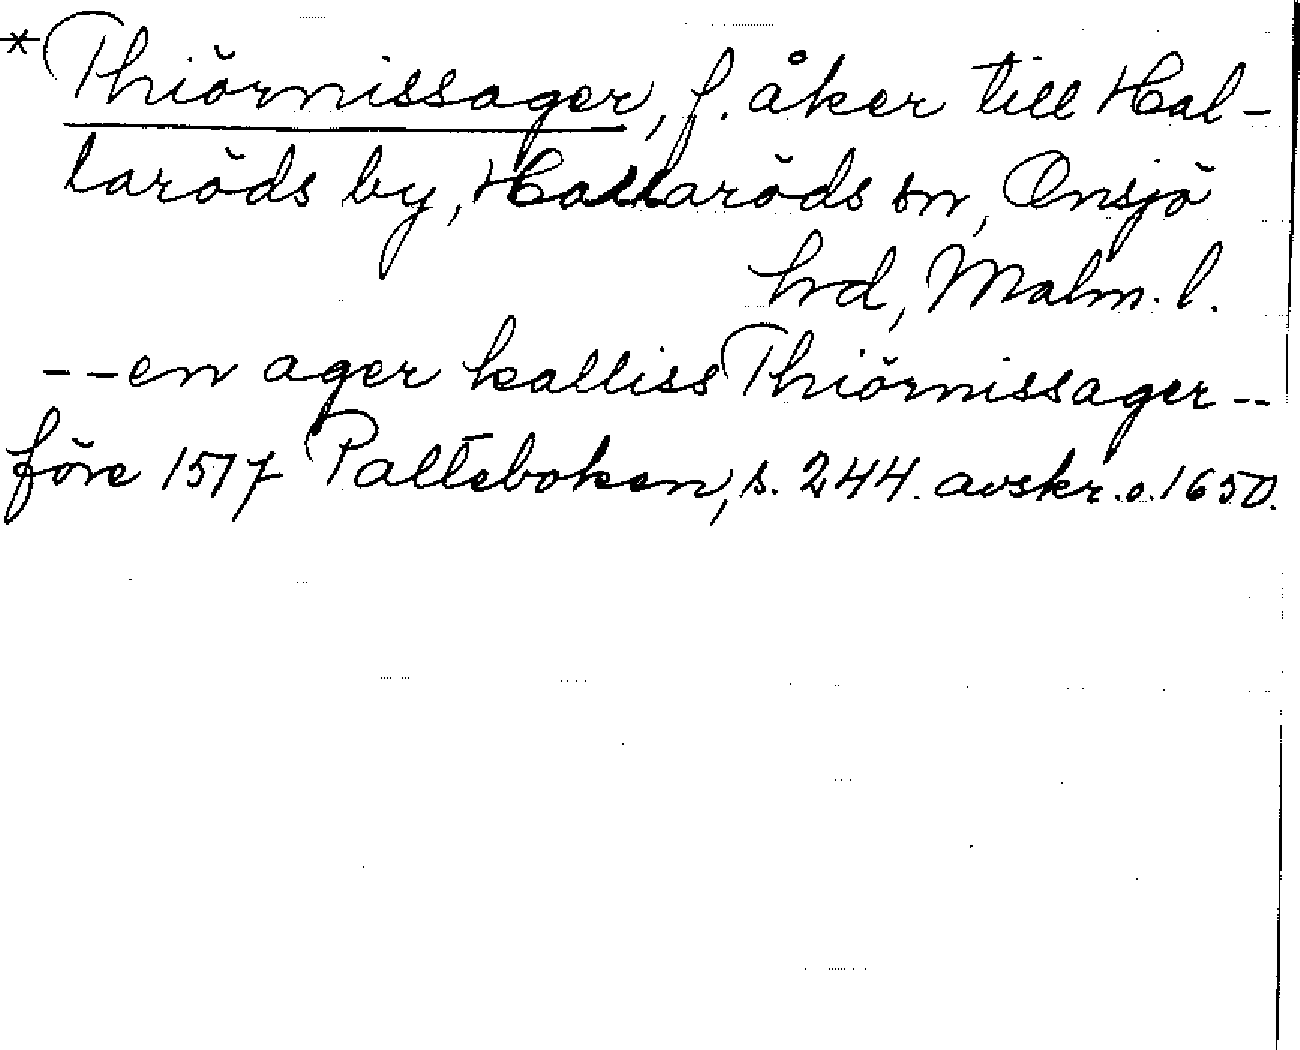 *Thiörnissager, f. åker till Hal-
laröds by, Hallaröds sn, Onsjö
hd, Malm. l.
--en ager kalliss Thiörnissager--
före 1517 Palteboken, s. 244. avskr. o. 1650.